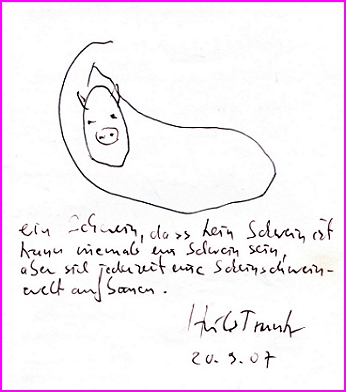 ein Schwein, dass kein Schwein ist
kann niemals ein Schwein sein,
aber sich jederzeit eine Scheinschwein-
welt aufbauen.
20.9.07